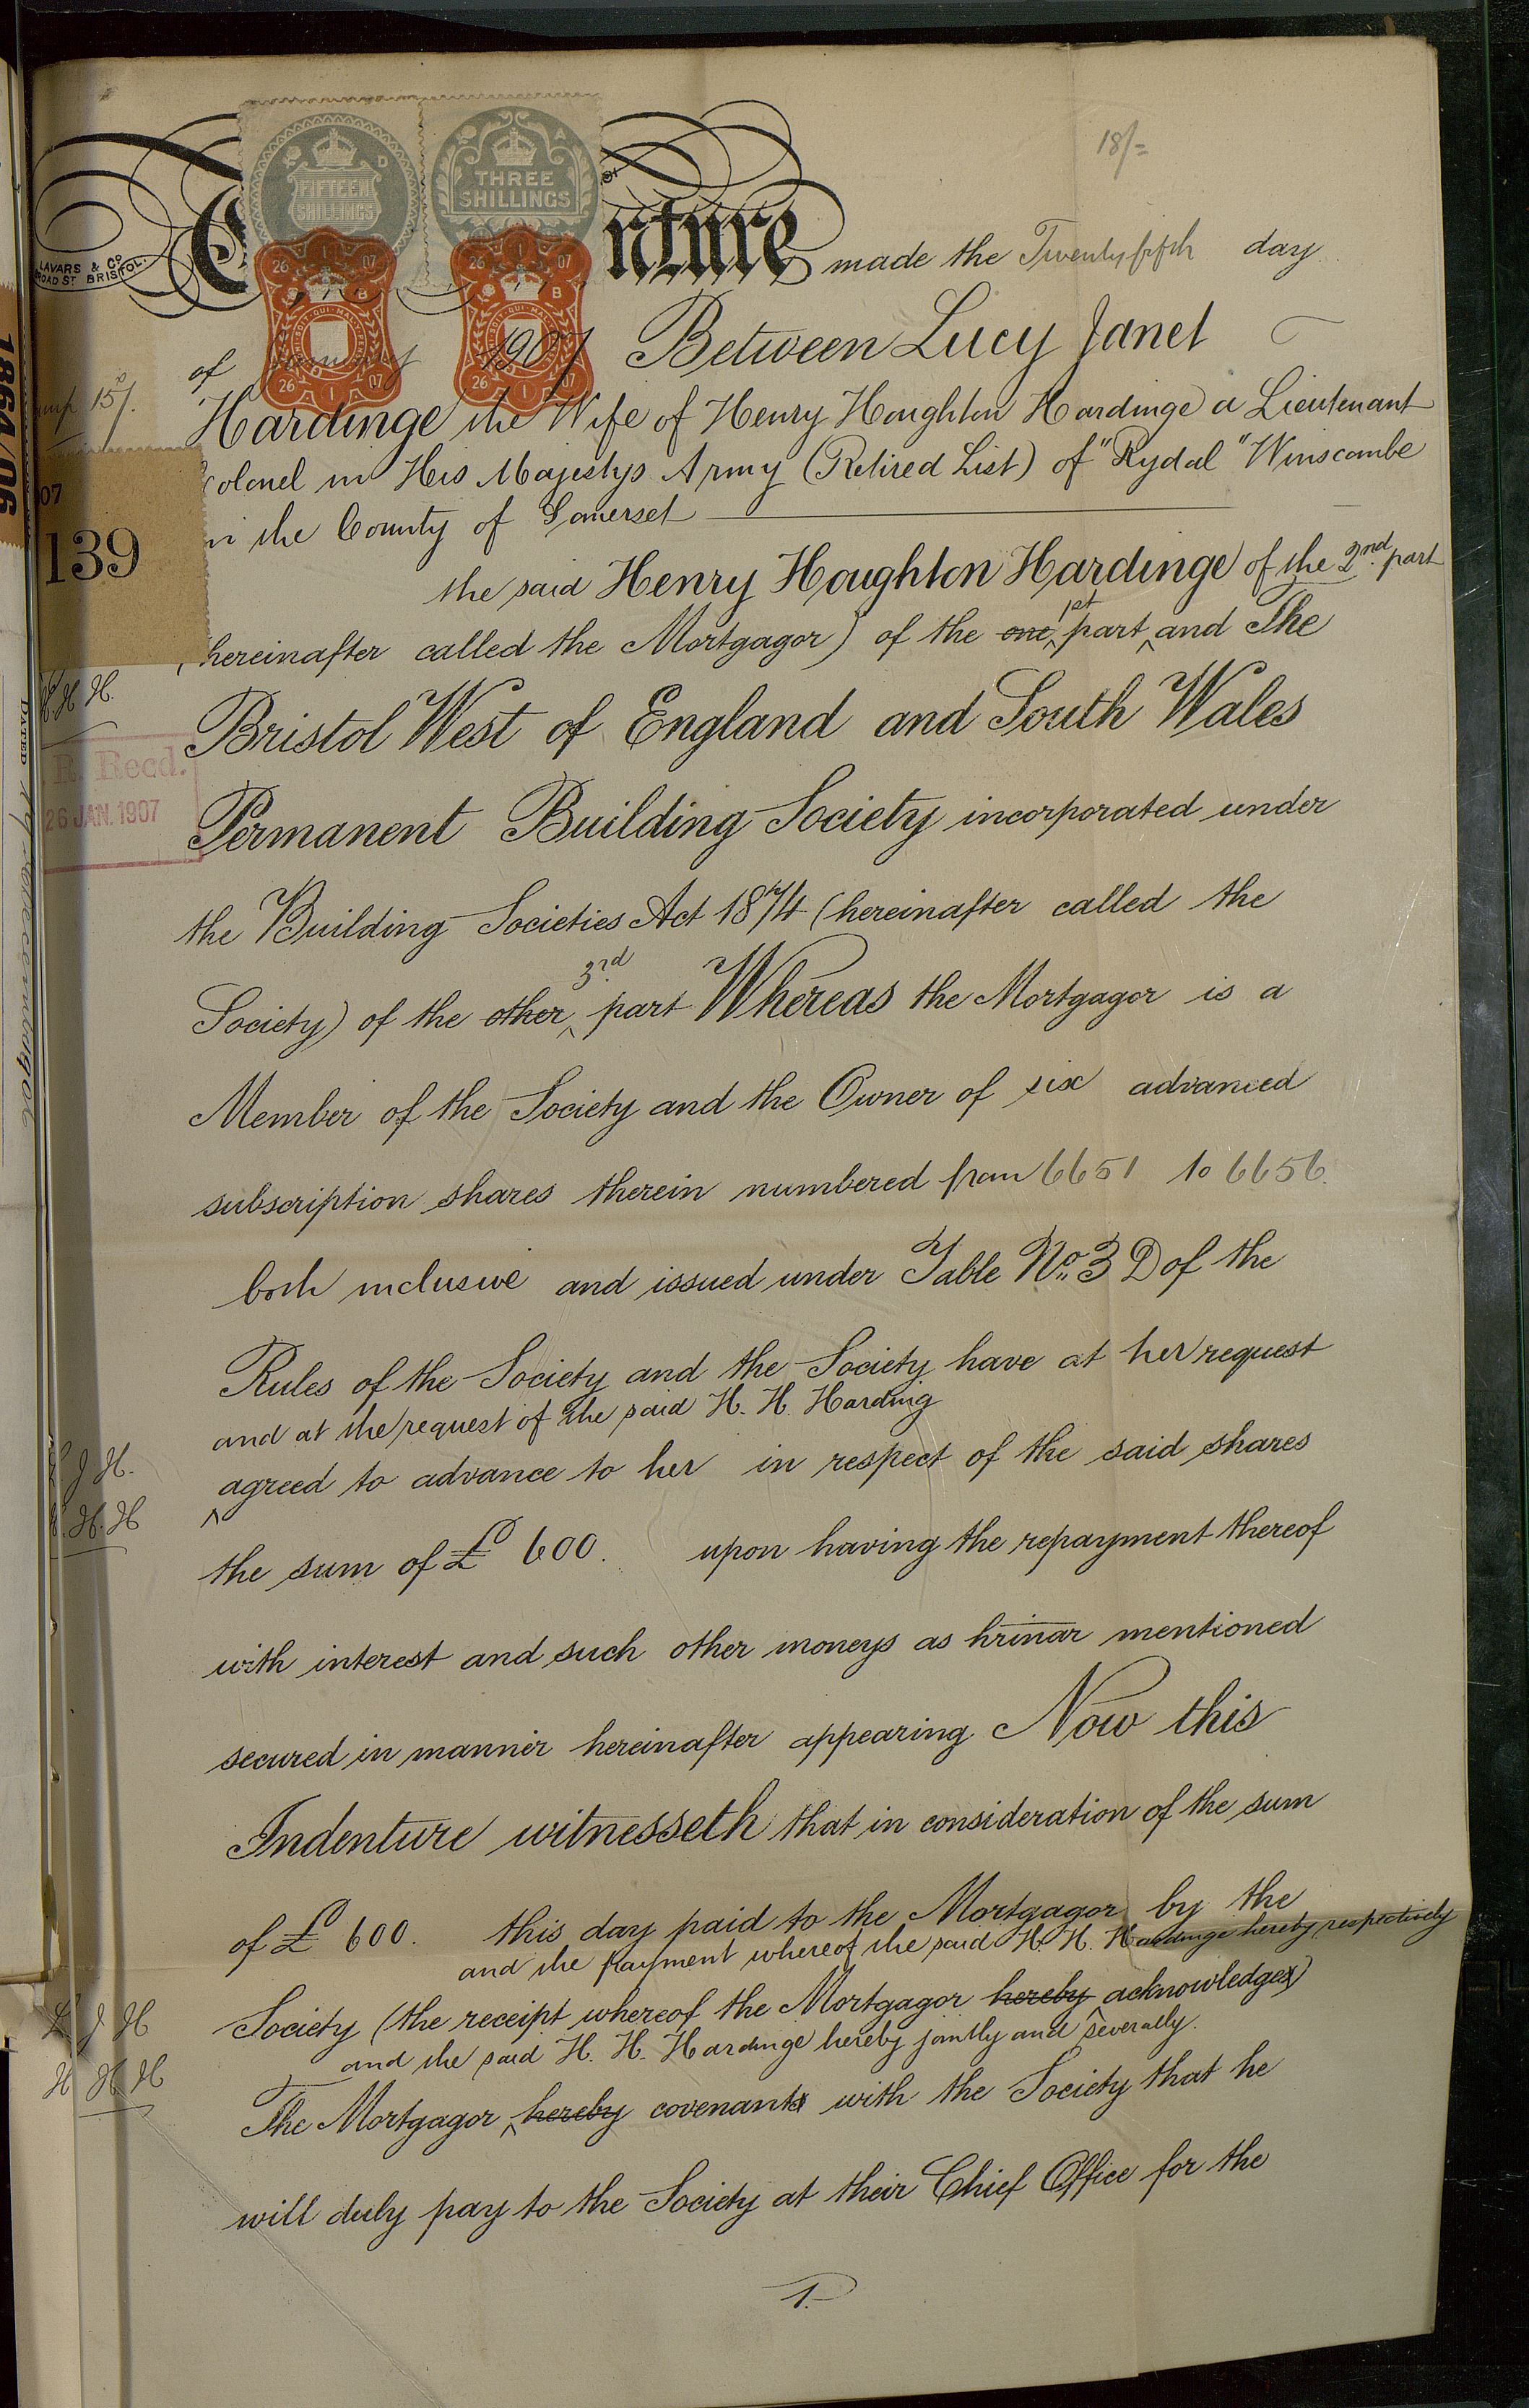 18/=
FIFTEEN SHILLINGS
THREE SHILLINGS
LAVARS & Co
BROAD ST. BRISTOL.
nture made the Twenty fifth day
26 1 07
26 1 07
of January 1907 Between Lucy Janet
15/.
Hardinge the Wife of Henry Houghton Hardinge a Lieutenant
Colonel in His Majestys Army (Retired List) of "Rydal" Winscombe
in the County of Somerset
1864/06
07
139
the said Henry Houghton Hardinge of the 2nd. part
(hereinafter called the Mortgagor) of the one 1st part and The
H.H.H.
Bristol West of England and South Wales
R. Recd.
26 JAN. 1907
DATED
Permanent Building Society incorporated under
the Building Societies Act 1874 (hereinafter called the
Society) of the other 3rd. part Whereas the Mortgagor is a
Member of the Society and the Owner of six advanced
subscription shares therein numbered from 6651 to 6656.
both inclusive and issued under Table No. 3 D of the
Rules of the Society and the Society have at her request
and at the request of the said H. H. Harding
J H.
agreed to advance to her in respect of the said shares
H. H. H
the sum of £ 600. upon having the repayment thereof
with interest and such other moneys as hrinar mentioned
secured in manner hereinafter appearing Now this
Indenture witnesseth that in consideration of the sum
of £ 600. this day paid to the Mortgagor by the
and the payment whereof the said H. H. Hardinge hereby respectively
L J H
Society (the receipt whereof the Mortgagor hereby acknowledges)
and the said H. H. Hardinge hereby jointly and severally.
H H H
The Mortgagor hereby covenants with the Society that he
will duly pay to the Society at their Chief Office for the
1.